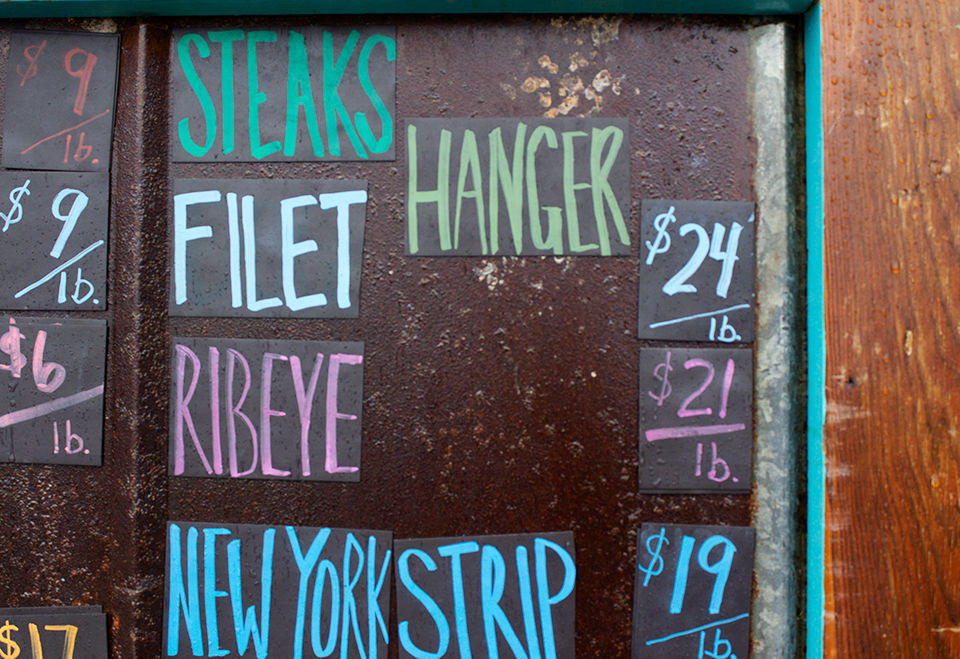 $9/lb.
$9/lb.
$6/lb.
$17
STEAKS
HANGER
FILET $24/lb.
RIBEYE $21/lb.
NEW YORK STRIP $19/lb.